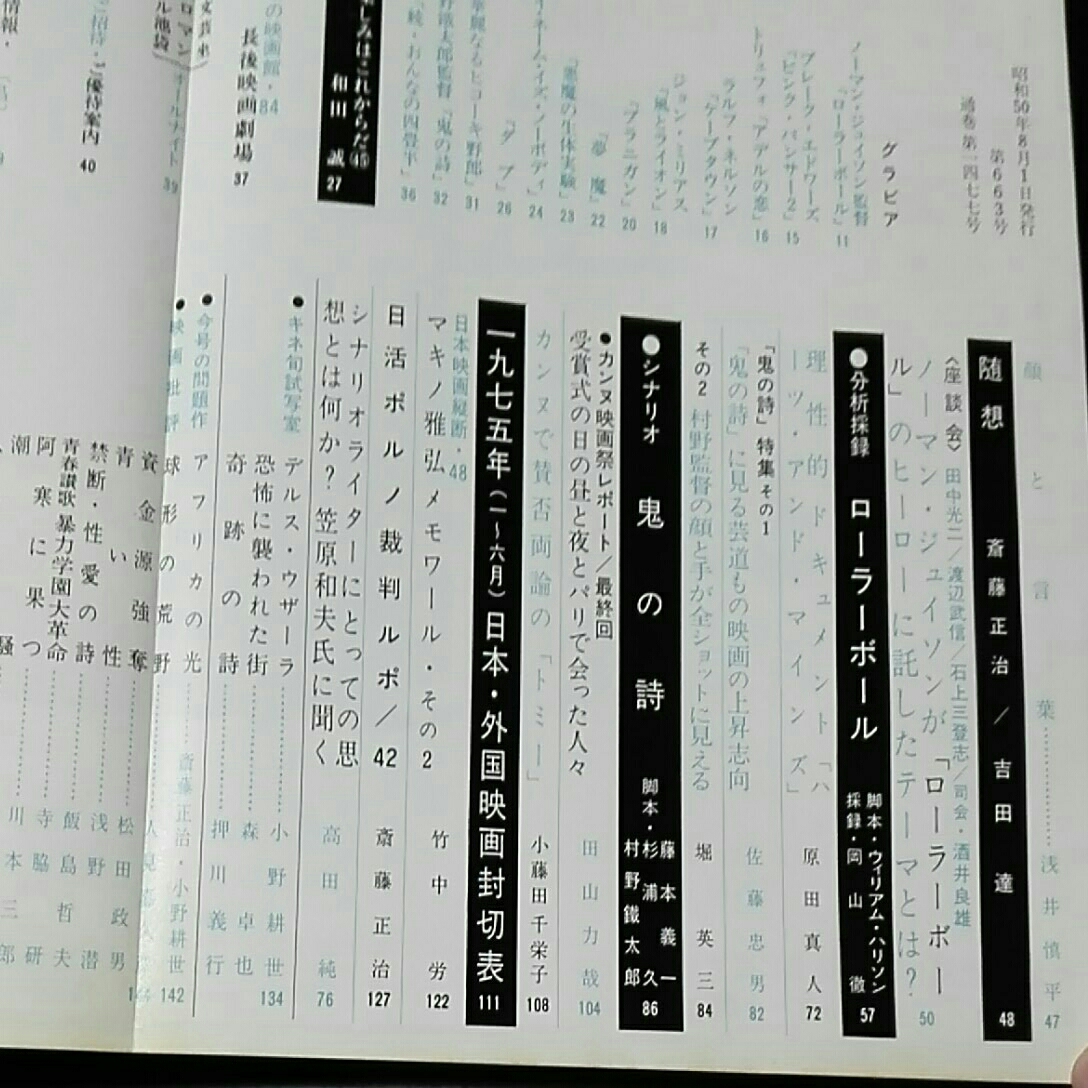 昭和50年8月1日発行
第663号
通巻第一四七七号
グラビア
ノーマン・ジュイソン監督
「ローラーボール」 11
ブレーク・エドワーズ
「ピンク・パンサー2」 15
トリュフォ「アデルの恋」 16
ラルフ・ネルソン
「ケープタウン」 17
ジョン・ミリアス
「風とライオン」 18
「ブラニガン」 20
「夢魔」 22
「悪魔の生体実験」 23
イネーム・イズ・ノーボディ」 24
「ダブ」 26
華麗なるヒコーキ野郎」 31
野鐵太郎監督「鬼の詩」 32
「続・おんなの四畳半」 36
しみはこれからだ㊺
和田 誠 27
の映画館・84
長後映画劇場 37
文芸坐
ロマン
ル池袋)
オールナイト 39
ご招待・ご優待案内 40
情報・
醸と言葉 浅井慎平 47
随想 斎藤正治/吉田 達 48
〈座談会〉田中光二/渡辺武信/石上三登志/司会・酒井良雄
ノーマン・ジュイソンが「ローラーボー
ル」のヒーローに託したテーマとは? 50
●分析採録 ローラーボール
脚本・ウィリアム・ハリソン
採録・岡山 徹 57
理性的ドキュメント「ハ
ーツ・アンド・マインズ」 原田真人 72
「鬼の詩」特集その1
「鬼の詩」に見る芸道もの映画の上昇志向 佐藤忠男 82
その2 村野監督の顔と手が全ショットに見える 堀 英三 84
●シナリオ 鬼の詩
脚本・藤本義一
杉浦 久
村野鐵太郎 86
●カンヌ映画祭レポート/最終回
受賞式の日の昼と夜とパリで会った人々 田山力哉 104
カンヌで賛否両論の「トミー」 小藤田千栄子 108
一九七五年(一〜六月)日本・外国映画封切表 111
日本映画縦断・48
マキノ雅弘メモワール・その2 竹中 労 122
日活ポルノ裁判ルポ/42 斎藤正治 127
シナリオライターにとっての思
想とは何か?笠原和夫氏に聞く 高田 純 76
●キネ旬試写室
デルス・ウザーラ 小野耕世
恐怖に襲われた街 森 卓也
奇跡の詩 押川義行 134
●今号の問題作
アフリカの光 斎藤正治・小野耕世 142
●映画批評
球形の荒野
資金源強奪 松田政男
青い性 浅野 潜
禁断・性愛の詩 飯島哲夫
青春讃歌 暴力学園大革命 寺脇 研
阿寒に果つ 川本三郎
潮騒